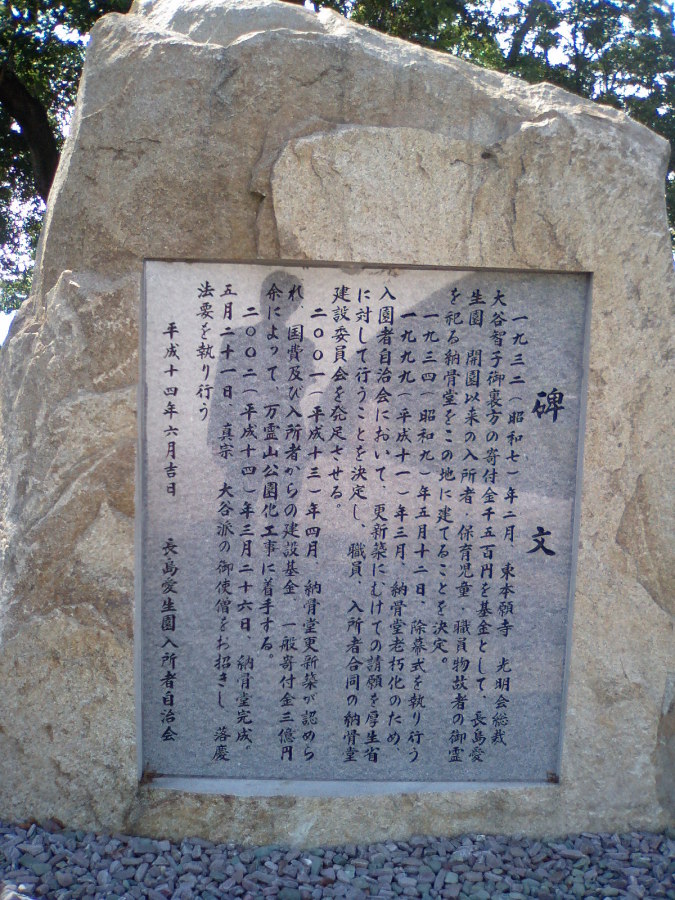 碑文
一九三二(昭和七)年二月、東本願寺 光明会総裁
大谷智子御裏方の寄付金千五百円を基金として、長島愛
生園 開園以来の入所者、保育児童、職員物故者の御霊
を祀る納骨堂をこの地に建てることを決定。
一九三四(昭和九)年五月十二日、除幕式を執り行う
一九九九(平成十一)年三月、納骨堂老朽化のため、
入園者自治会において、更新築にむけての請願を厚生省
に対して行うことを決定し、職員、入所者合同の納骨堂
建設委員会を発足させる。
二〇〇一(平成十三)年四月 納骨堂更新築が認めら
れ、国費及び入所者からの建設基金、一般寄付金三億円
余によって、万霊山公園化工事に着手する。
二〇〇二(平成十四)年三月二十六日、納骨堂完成。
五月二十一日、真宗 大谷派の御使僧をお招きし 落慶
法要を執り行う
平成十四年六月吉日 長島愛生園入所者自治会